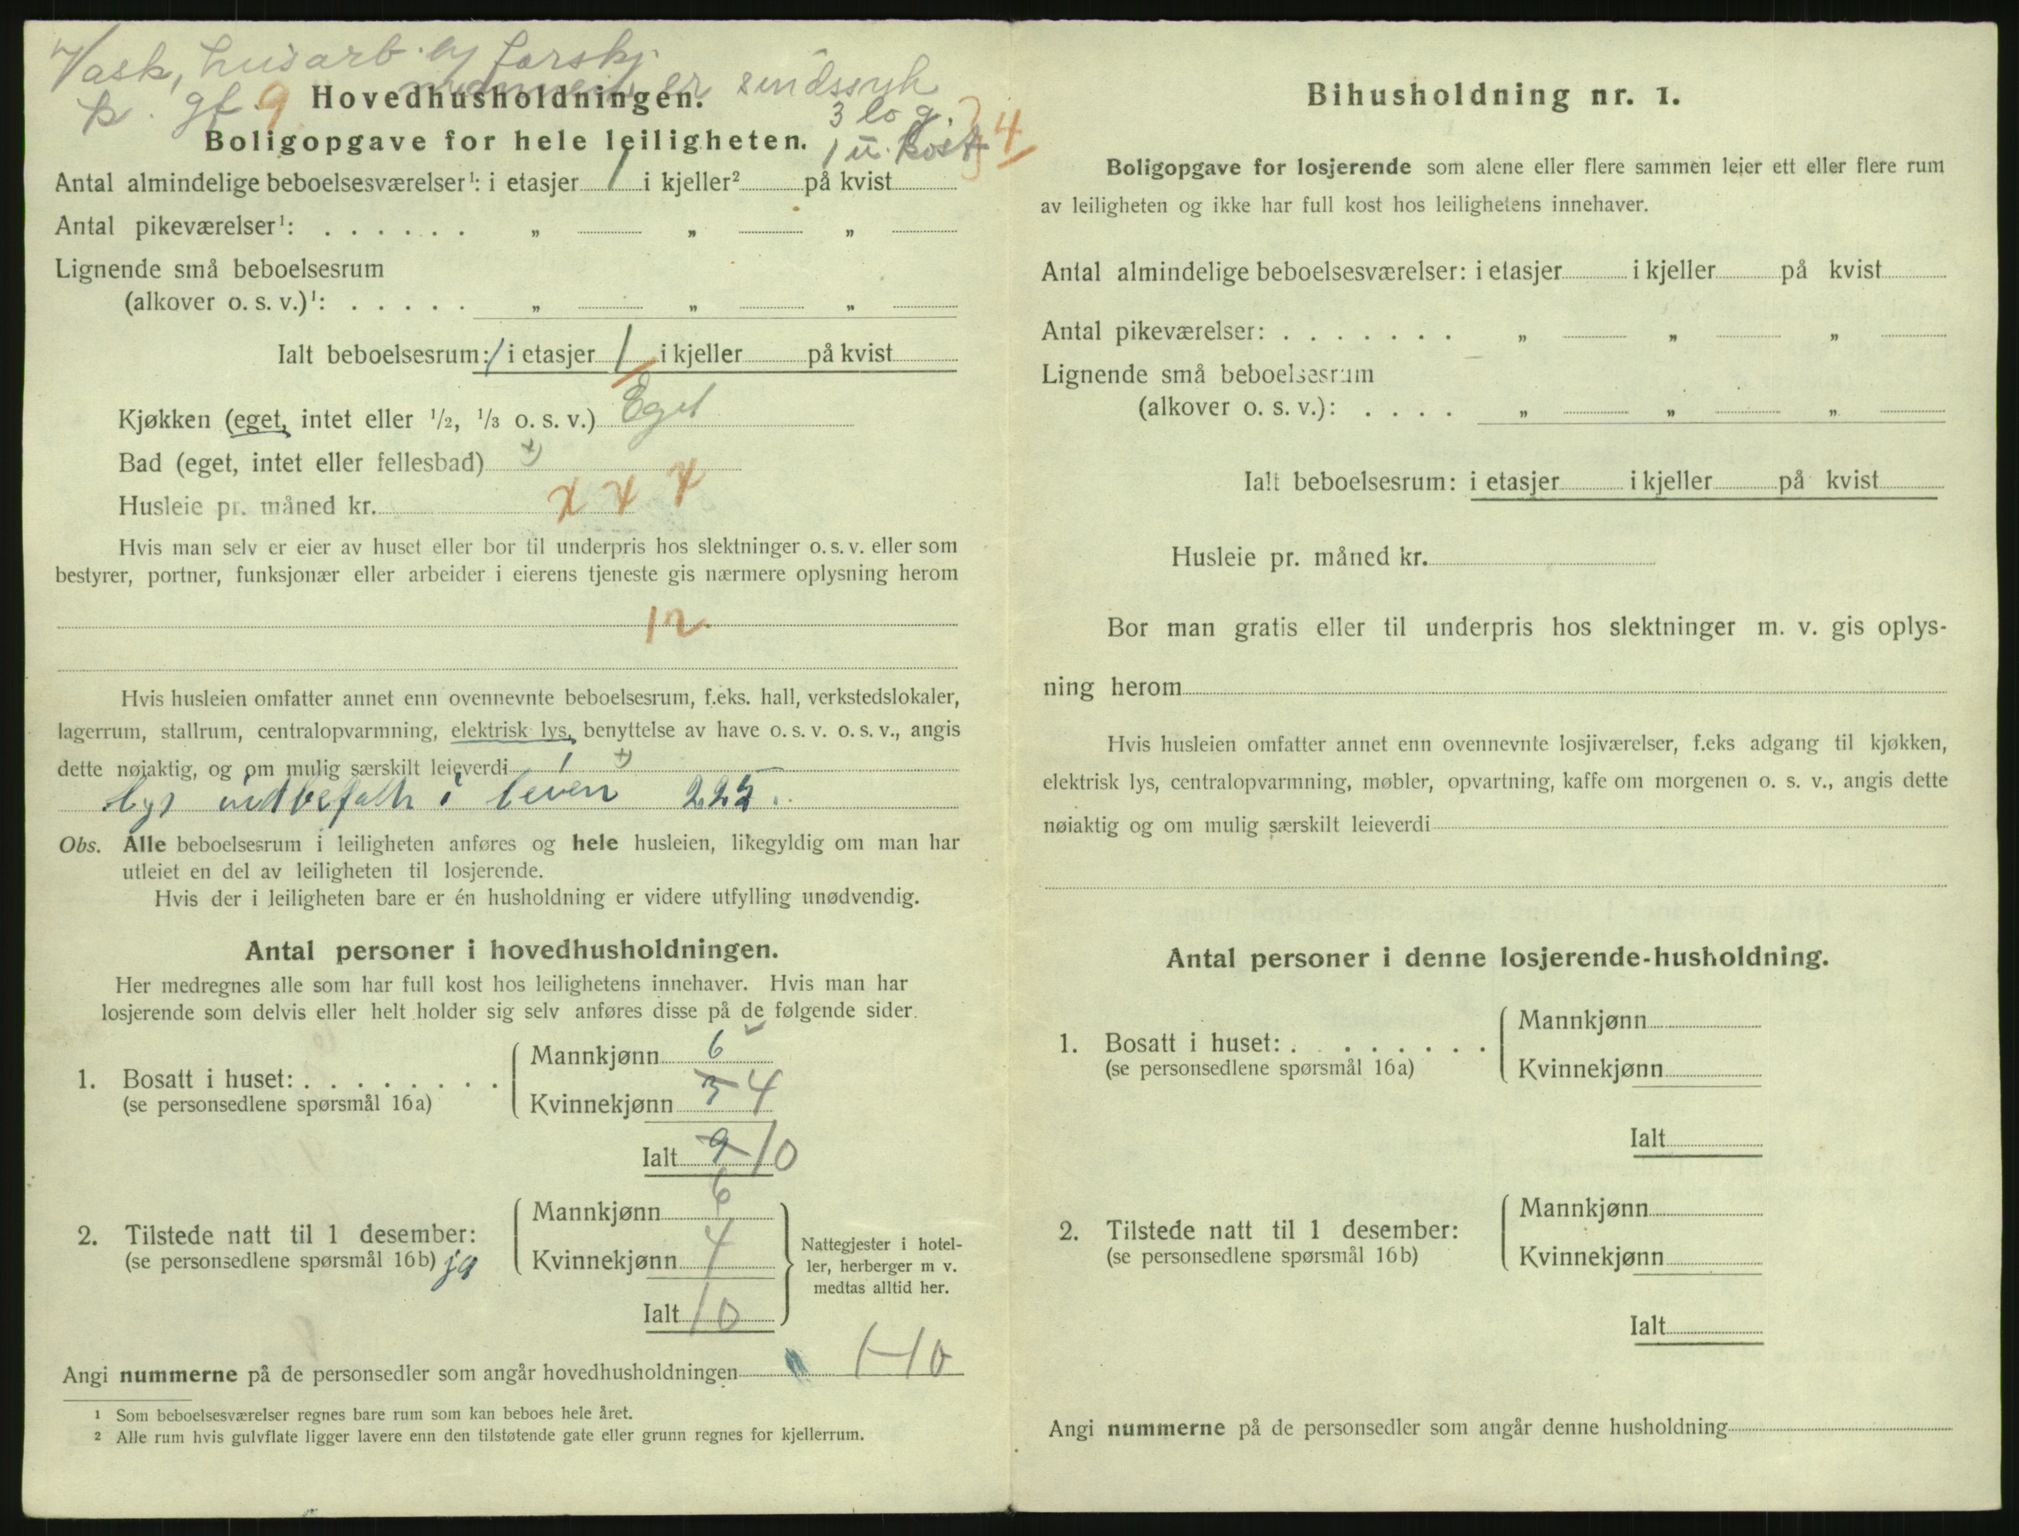 Vask, husarb. og forskj
mannen er sindssyk
p. gf. 9
Hovedhusholdningen.
3 log.
Boligopgave for hele leiligheten.
1 u. kost 4
Antal almindelige beboelsesværelser¹: i etasjer 1 i kjeller² på kvist
Antal pikeværelser¹: . . . . . . „ „ „
Lignende små beboelsesrum
(alkover o. s. v.)¹: . . . . . „ „ „
Ialt beboelsesrum: 1 i etasjer 1 i kjeller på kvist
Kjøkken (eget, intet eller ½, ⅓ o. s. v.) Eget
Bad (eget, intet eller fellesbad)
Husleie pr. måned kr. x x x
Hvis man selv er eier av huset eller bor til underpris hos slektninger o. s. v. eller som
bestyrer, portner, funksjonær eller arbeider i eierens tjeneste gis nærmere oplysning herom
12
Hvis husleien omfatter annet enn ovennevnte beboelsesrum, f.eks. hall, verkstedslokaler,
lagerrum, stallrum, centralopvarmning, elektrisk lys, benyttelse av have o. s. v. o. s. v., angis
dette nøiaktig, og om mulig særskilt leieverdi
lys indbefath i leven 225.
Obs. Alle beboelsesrum i leiligheten anføres og hele husleien, likegyldig om man har
utleiet en del av leiligheten til losjerende.
Hvis der i leiligheten bare er én husholdning er videre utfylling unødvendig.
Antal personer i hovedhusholdningen.
Her medregnes alle som har full kost hos leilighetens innehaver. Hvis man har
losjerende som delvis eller helt holder sig selv anføres disse på de følgende sider.
Mannkjønn 6
1. Bosatt i huset: . . . . . . . .
(se personsedlene spørsmål 16a)
Kvinnekjønn 3 4
Ialt 9 10
Mannkjønn 6
2. Tilstede natt til 1 desember:
(se personsedlene spørsmål 16b) ja
Kvinnekjønn 4
Ialt 10
Nattegjester i hotel-
ler, herberger m v.
medtas alltid her.
Angi nummerne på de personsedler som angår hovedhusholdningen 1-10
¹ Som beboelsesværelser regnes bare rum som kan beboes hele året.
² Alle rum hvis gulvflate ligger lavere enn den tilstøtende gate eller grunn regnes for kjellerrum.
Bihusholdning nr. 1.
Boligopgave for losjerende som alene eller flere sammen leier ett eller flere rum
av leiligheten og ikke har full kost hos leilighetens innehaver.
Antal almindelige beboelsesværelser: i etasjer i kjeller på kvist
Antal pikeværelser: . . . . . . . „ „ „
Lignende små beboelsesrum
(alkover o. s. v.): . . . . „ „ „
Ialt beboelsesrum: i etasjer i kjeller på kvist
Husleie pr. måned kr.
Bor man gratis eller til underpris hos slektninger m. v. gis oplys-
ning herom
Hvis husleien omfatter annet enn ovennevnte losjiværelser, f.eks adgang til kjøkken,
elektrisk lys, centralopvarmning, møbler, opvartning, kaffe om morgenen o. s. v., angis dette
nøiaktig og om mulig særskilt leieverdi
Antal personer i denne losjerende-husholdning.
Mannkjønn
1. Bosatt i huset: . . . . . . . .
(se personsedlene spørsmål 16a)
Kvinnekjønn
Ialt
Mannkjønn
2. Tilstede natt til 1 desember:
(se personsedlene spørsmål 16b)
Kvinnekjønn
Ialt
Angi nummerne på de personsedler som angår denne husholdning